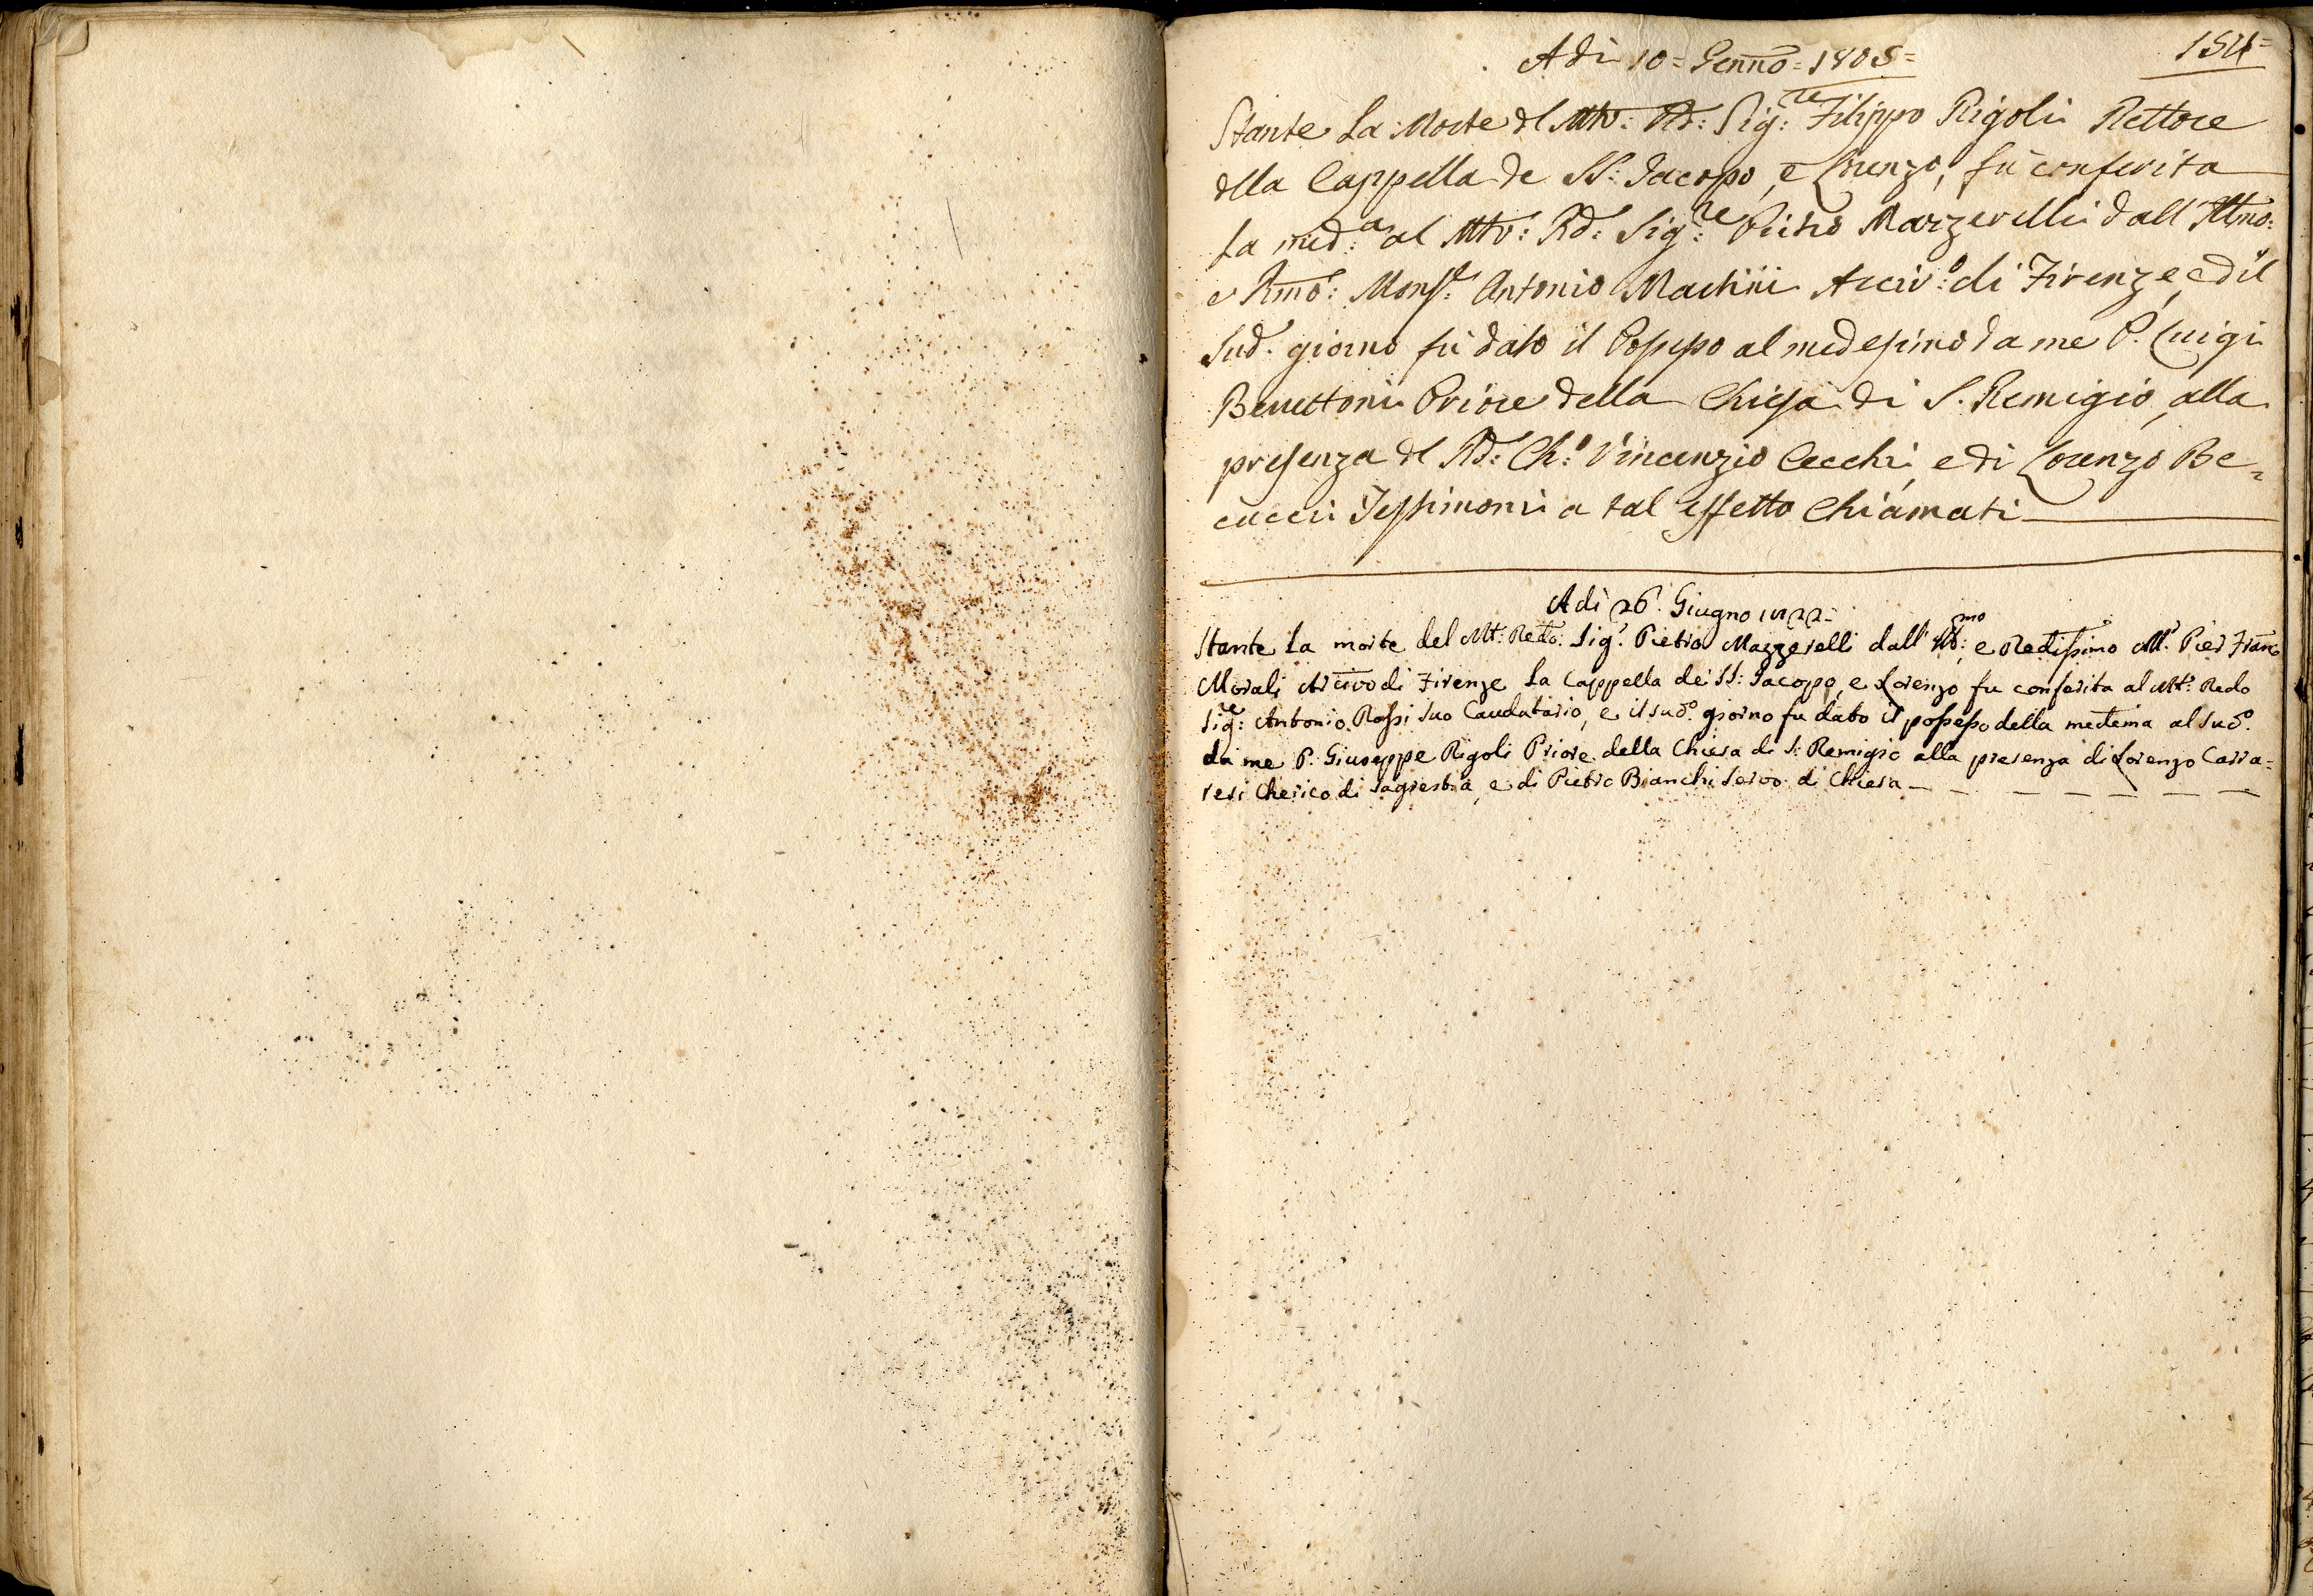 154=
Adi 10= Genno= 1805=
Stante La Morte dl Mto: Rd: Sig:re Filippo Rigoli Rettore
dlla Cappella de SS: Jacopo, e Lorenzo, fu conferita
La med:a al Mto: Rd: Sig:re Pietro Mazzerelli dall' Illmo:
e Rmo: Monsr: Antonio Martini Arciv:o di Firenze, e dil
Sud. giorno fù dato il Possesso al medesimo da me P. Luigi
Benettoni Priore della Chiesa di S. Remigio, alla
presenza dl Rd: Ch:o Vincenzio Cecchi, e di Lorenzo Be=
cucci Testimoni a tal effetto Chiamati
Adi 26. Giugno 1822=
Stante La morte del Mt: Redo: Sigr. Pietro Mazzerelli dall' Ill:mo, e Redissimo Mr. Pier Franco
Morali Arcivo di Firenze La Cappella dei SS: Jacopo, e Lorenzo fu conferita al Mt: Redo
Sig:re Antonio Rossi Suo Caudatario, e il sudo. giorno fu dato il possesso della medema al Sudo.
da me P. Giuseppe Rigoli Priore della Chiesa di S: Remigio alla presenza di Lorenzo Carra=
resi Cherico di Sagrestia, e di Pietro Bianchi Servo di Chiesa